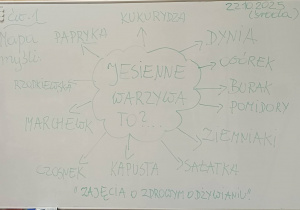 22.10.2025
(środa)
Mapa
myśli
KUKURYDZA
PAPRYKA
DYNIA
OGÓREK
RZODKIEWKA
JESIENNE
WARZYWA
TO?
BURAK
POMIDORY
MARCHEWK
ZIEMNIAKI
CZOSNEK
KAPUSTA
SAŁATKA
"ZAJĘCIA O ZDROWYM ODŻYWIANIU"